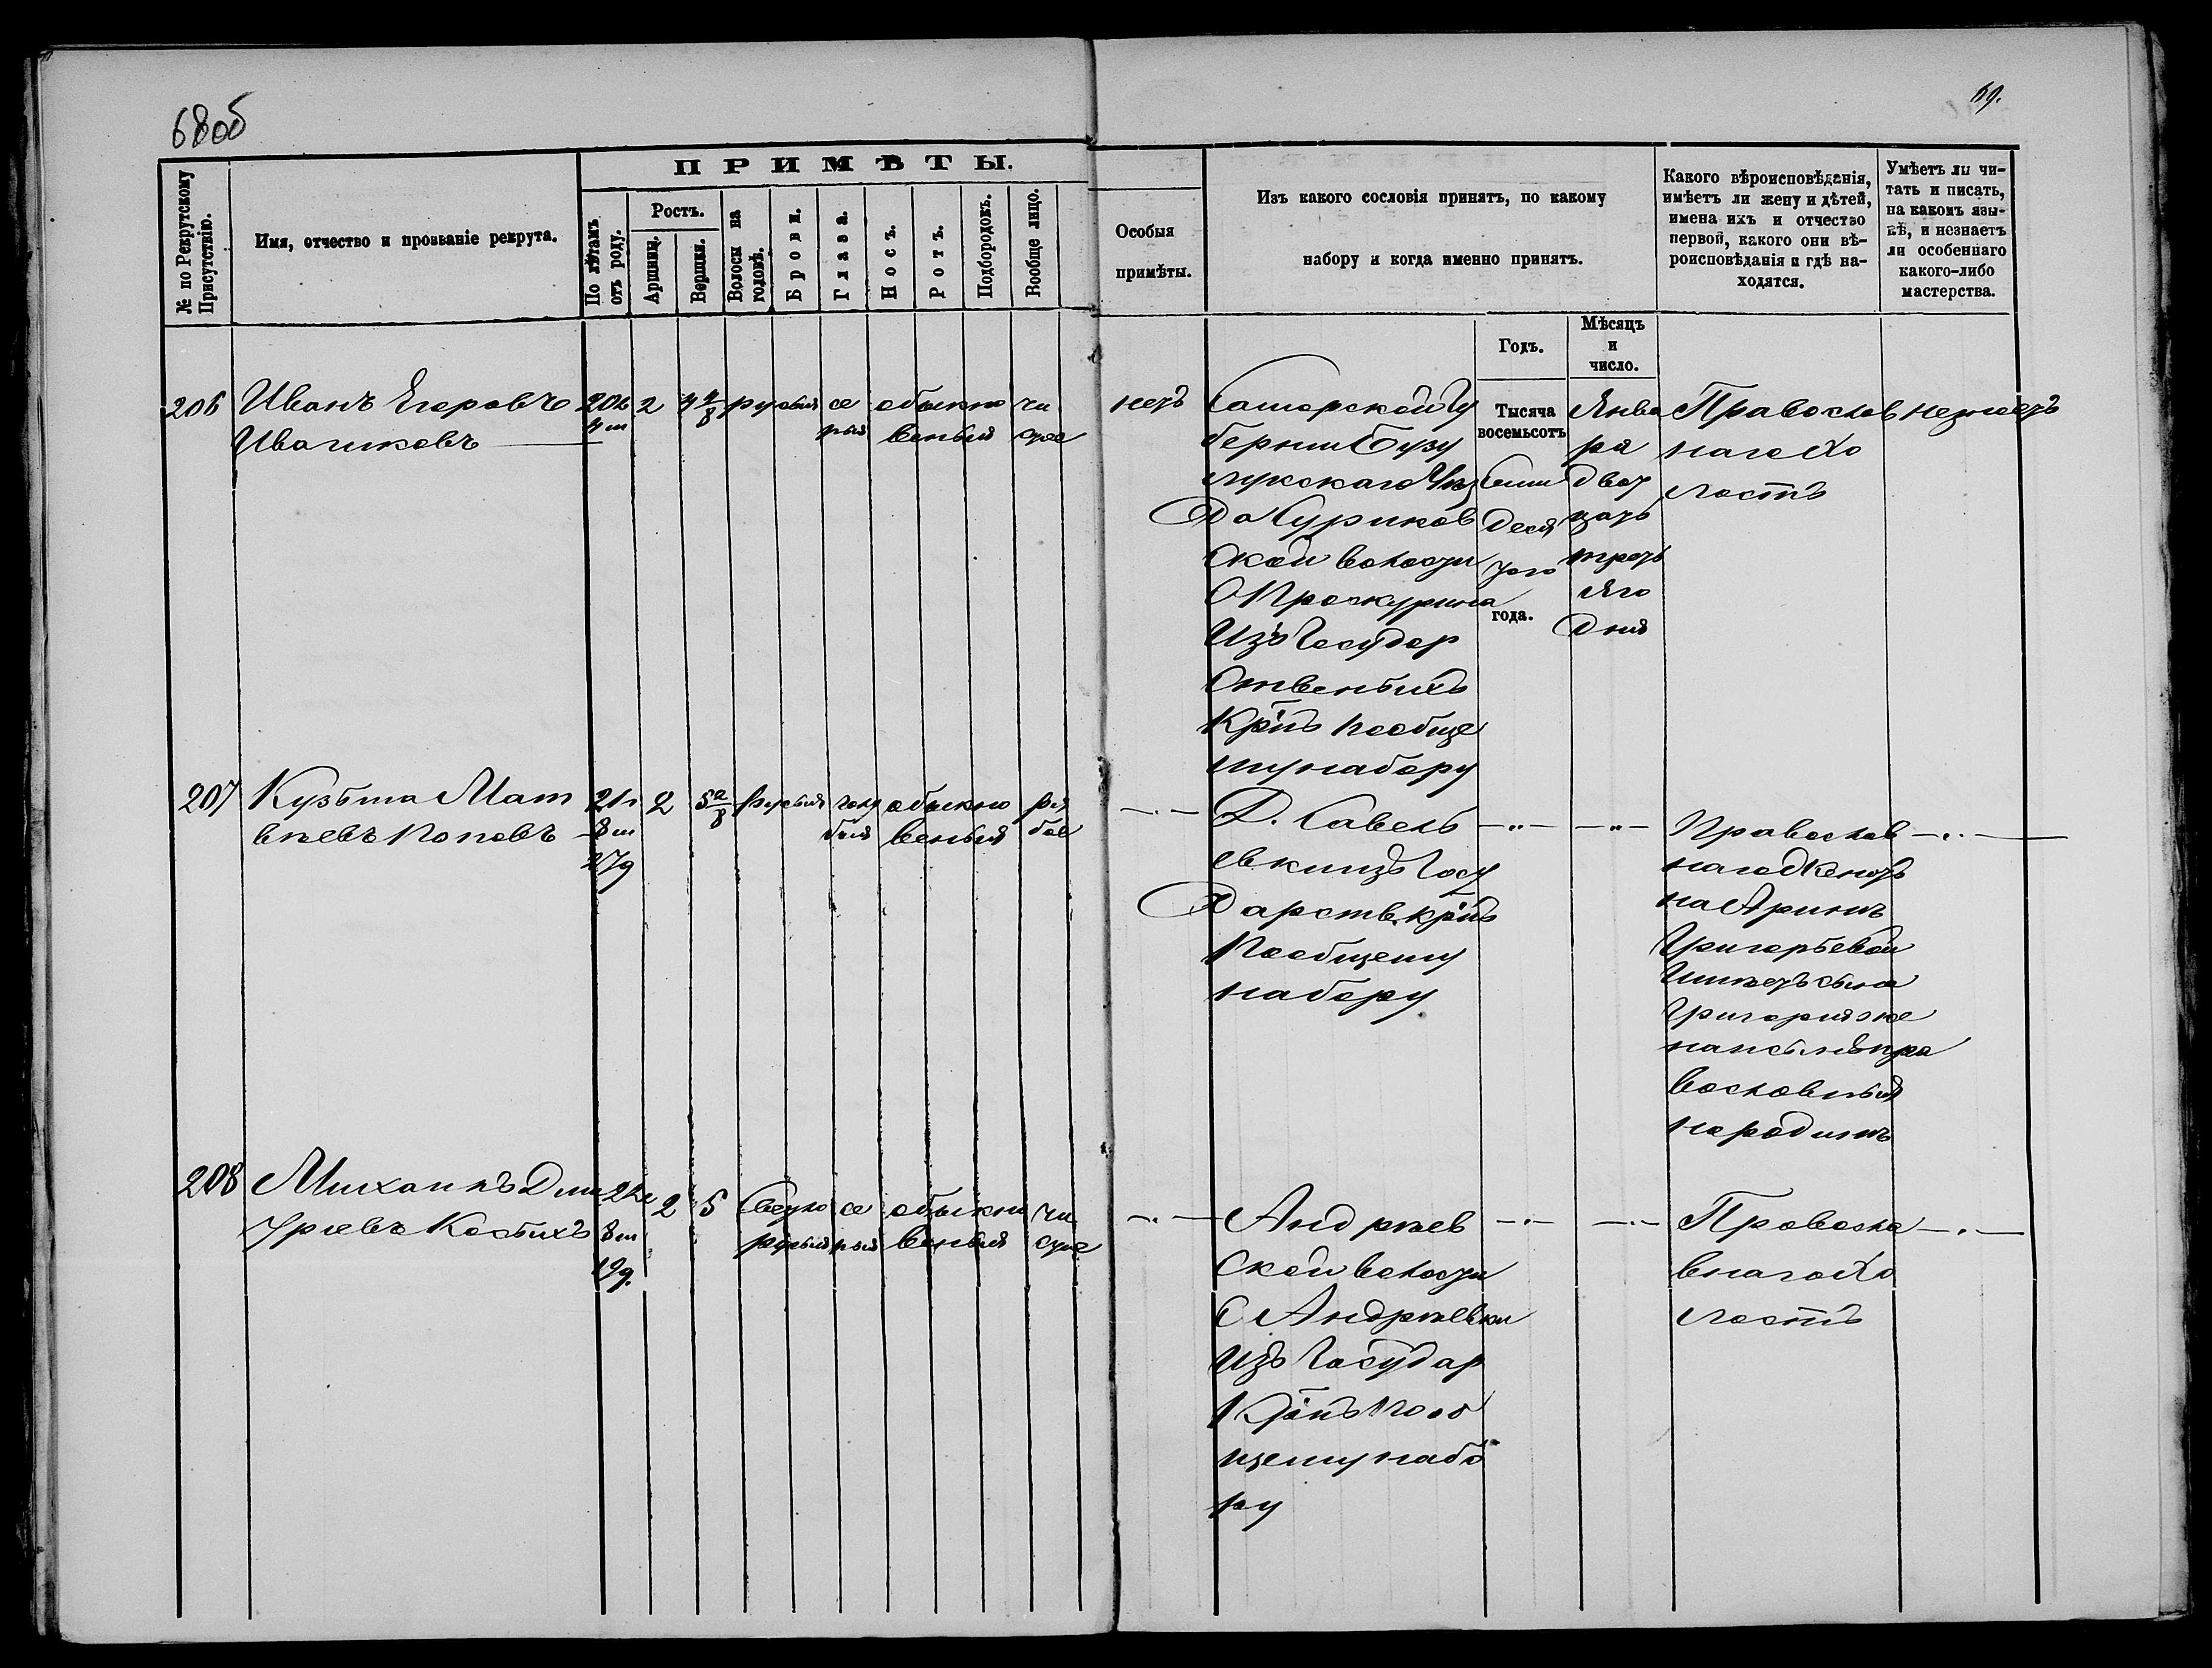 68об
69.
ПРИМѢТЫ.
№ по Рекрутскому Присутствію.
Имя, отчество и прозваніе рекрута.
По лѣтамъ отъ роду.
Ростъ.
Аршинъ.
Вершки.
Волосы на головѣ.
Брови.
Глаза.
Носъ.
Ротъ.
Подбородокъ.
Вообще лицо.
Особыя
примѣты.
Изъ какого сословія принятъ, по какому
набору и когда именно принятъ.
Какого вѣроисповѣданія,
имѣетъ ли жену и дѣтей,
имена ихъ и отчество
первой, какого они вѣ-
роисповѣданія и гдѣ на-
ходятся.
Умѣетъ ли чи-
тать и писать,
на какомъ язы-
кѣ, и незнаетъ
ли особеннаго
какого-либо
мастерства.
Годъ.
Мѣсяцъ
и
число.
206
Иванъ Егоровъ
Ивашковъ
20л
4м
2
4 4/8
русыя
се
рыя
обыкно
веныя
чи
стое
нетъ
Самарской Гу
берніи Бузу
лукскаго Уѣз
да Куриков
ской волости
С Проскурина
Изъ Государ
ственныхъ
Кр̃нъ пообще
му набору
Тысяча
восемьсотъ
семи
деся
таго
года.
Янва
ря
двад
цать
треть
яго
дня
Православ
наго Хо
лостъ
незнаетъ
207
Кузьма Мат
вѣевъ Поповъ
21г
8м
27д
2
5 2/8
русыя
голу
быя
обыкно
веныя
ря
бое
—„—
Д. Савель
евки изъ Госу
дарств. кр̃нъ
Пообщему
набору
—„—
—„—
Православ
наго Женатъ
на Аринѣ
Григорьевой
Имѣетъ сына
Григорія же
на и сынъ пра
вославныя
на родинѣ
—„—
208
Михаилъ Дми
тріевъ Косыхъ
21г
8м
19д.
2
5
Светло
русыя
се
рыя
обыкно
веныя
чи
стое
—„—
Андрѣев
ской волости
С Андрѣевки
изъ Государ
Кр̃нъ пооб
щему набо
ру
—„—
—„—
Правосла
внаго Хо
лостъ
—„—